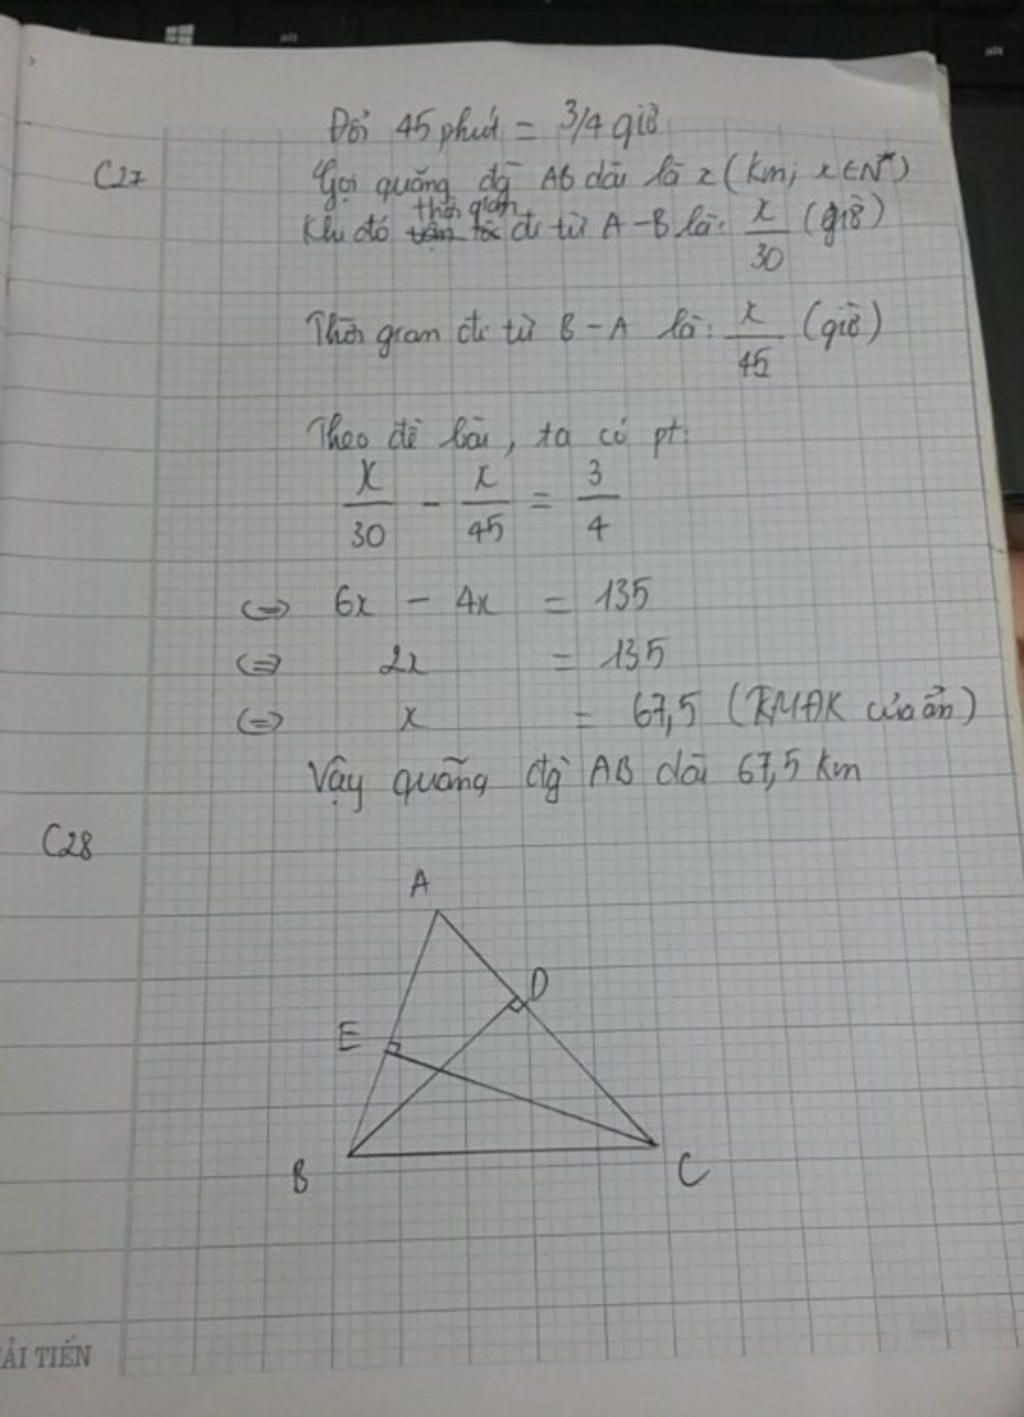 Đổi 45 phút = 3/4 giờ
C27
Gọi quãng đg AB dài là x (km; x ∈ N*)
thời gian
Khi đó vận tốc đi từ A-B là: x/30 (giờ)
Thời gian đi từ B-A là: x/45 (giờ)
Theo đề bài, ta có pt:
x/30 - x/45 = 3/4
<=> 6x - 4x = 135
<=> 2x = 135
<=> x = 67,5 (TMĐK của ẩn)
Vậy quãng đg AB dài 67,5 km
C28
A
D
E
B
C
ẢI TIẾN